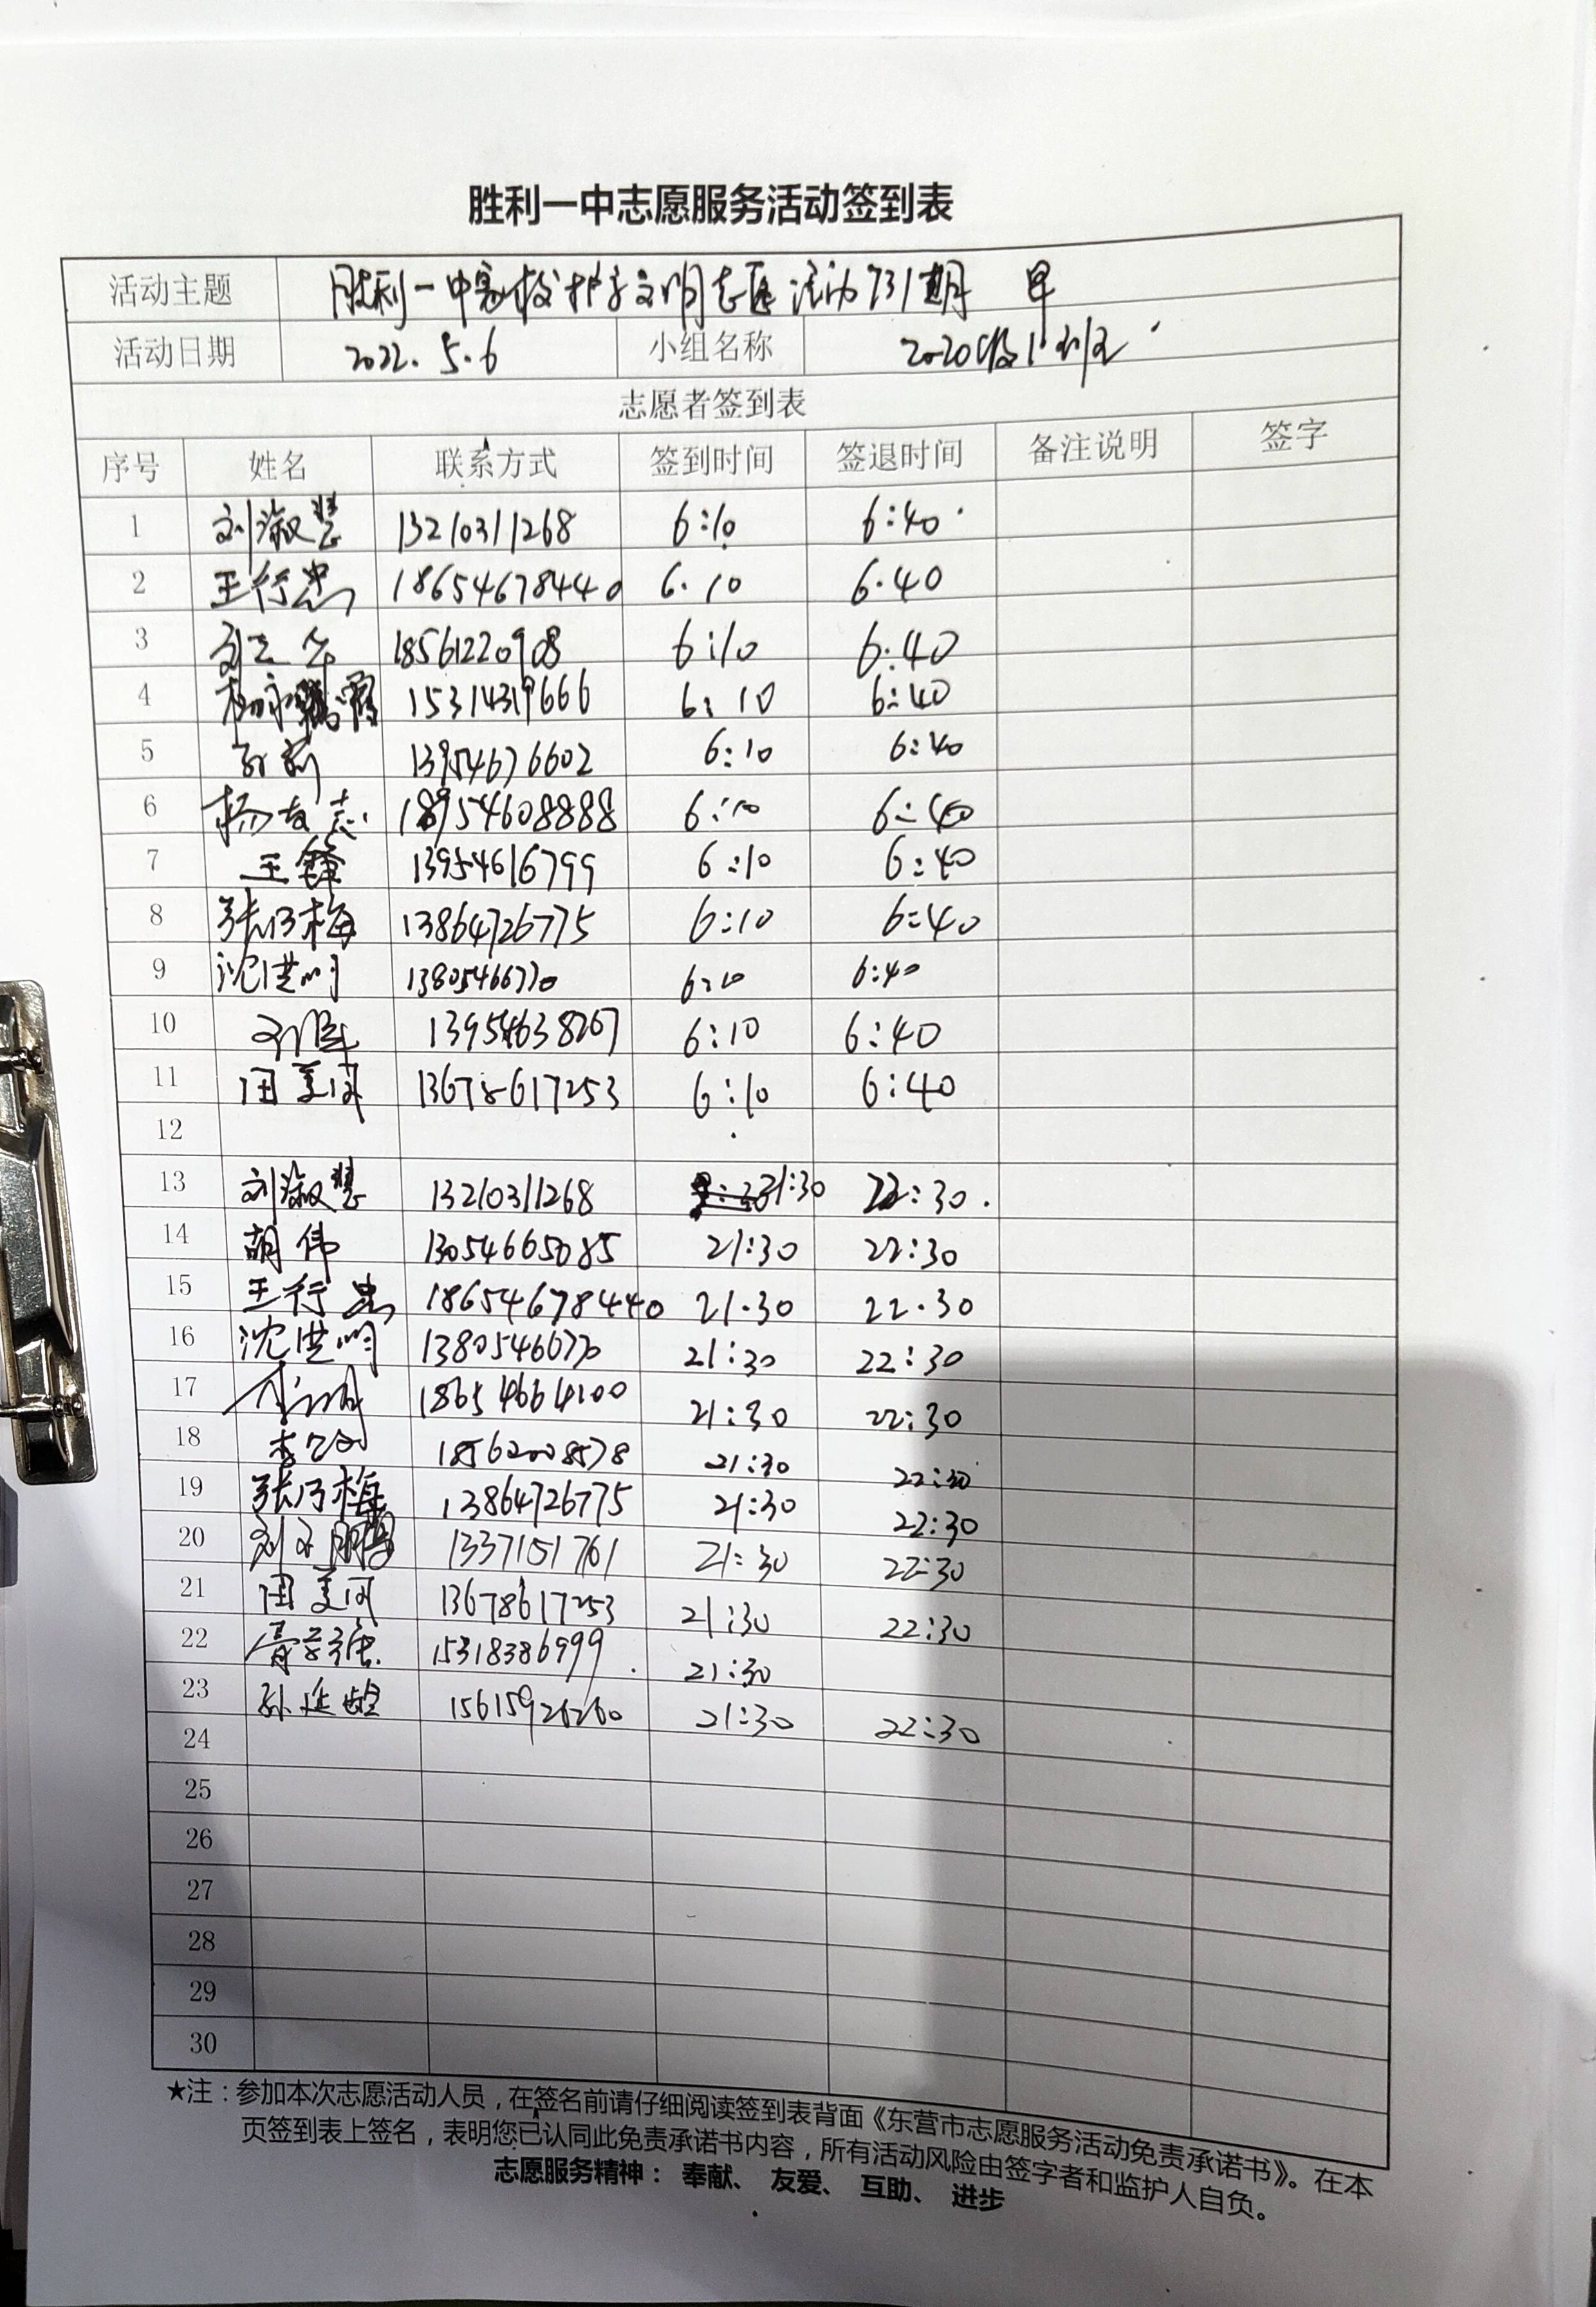 胜利一中志愿服务活动签到表
活动主题 胜利一中家校护学文明志愿活动731期 早
活动日期 2022.5.6 小组名称 2020级1班
志愿者签到表
序号 姓名 联系方式 签到时间 签退时间 备注说明 签字
1 刘淑慧 13210311268 6:10 6:40
2 王行忠 18654678440 6.10 6.40
3 18561220908 6:10 6:40
4 15314319666 6:10 6:40
5 孙莉 13954676602 6:10 6:40
6 杨友志 18954608888 6:10 6:40
7 王锋 13954616799 6:10 6:40
8 张乃梅 13864726775 6:10 6:40
9 沈洪明 1380546670 6:10 6:40
10 刘军 13954638267 6:10 6:40
11 田美闵 13678617253 6:10 6:40
12
13 刘淑慧 13210311268 21:30 22:30
14 胡伟 13054665085 21:30 22:30
15 王行忠 18654678440 21.30 22.30
16 沈洪明 21:30 22:30
17 18654664100 21:30 22:30
18 18562008578 21:30 22:30
19 张乃梅 13864726775 21:30 22:30
20 刘文鹏 1337151761 21:30 22:30
21 田美闵 13678617253 21:30 22:30
22 15318386999 21:30
23 孙延龄 15615926260 21:30 22:30
24
25
26
27
28
29
30
★注：参加本次志愿活动人员，在签名前请仔细阅读签到表背面《东营市志愿服务活动免责承诺书》。在本
页签到表上签名，表明您已认同此免责承诺书内容，所有活动风险由签字者和监护人自负。
志愿服务精神： 奉献、 友爱、 互助、 进步